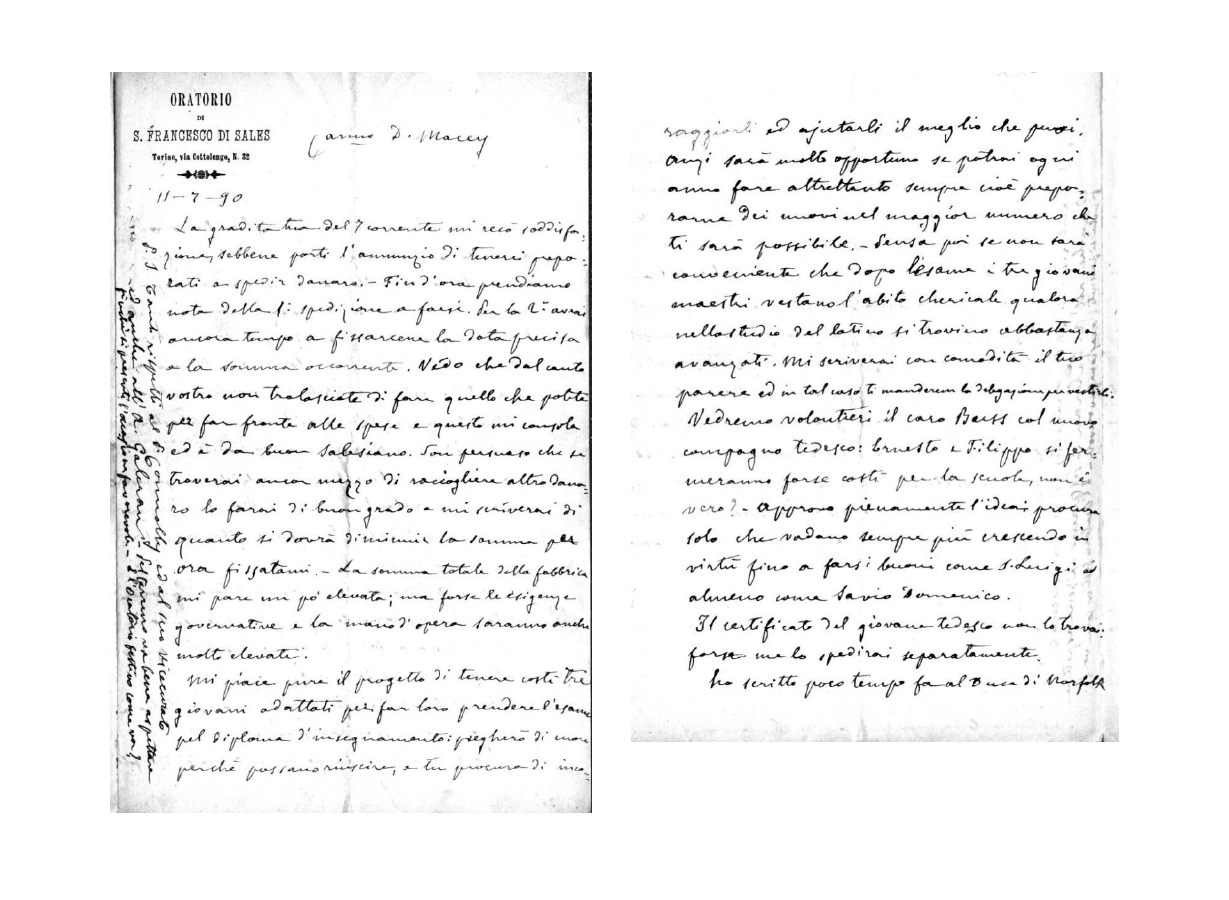 ORATORIO
DI
S. FRANCESCO DI SALES
Torino, via Cottolengo, N. 32
Carmo D. Macey
11-7-90
La gradita tua del 7 corrente mi recò soddisfa-
zione, sebbene porti l'annunzio di tenerci prepa-
rati a spedir danaro. - Fin d'ora prendiamo
nota della 1ª spedizione a farsi. Per la 2ª avrai
ancora tempo a fissarcene la data precisa
e la somma occorrente. Vedo che dal canto
vostro non tralasciate di fare quello che potete
per far fronte alle spese e questo mi consola
ed è da buon Salesiano. Son persuaso che se
troverai ancor mezzo di raccogliere altro dana-
ro lo farai di buon grado e mi scriverai di
quanto si dovrà diminuir la somma per
ora fissatami. - La somma totale della fabbrica
mi pare un pò elevata; ma forse le esigenze
governative e la mano d'opera saranno anche
molto elevate.
Mi piace pure il progetto di tenere costì tre
giovani adattati per far loro prendere l'esame
pel diploma d'insegnamento: pregherò di cuore
perchè possano riuscire, e tu procura di inco-
P.S. Tanti rispetti al D. Connolly ed al suo vicecurato
ed anche all'A. Galeran
va bene aspettare
finchè si presenti l'occasione favorevole - L'Oratorio festivo come va?
raggiarli ed ajutarli il meglio che puoi.
Anzi sarà molto opportuno se potrai ogni
anno fare altrettanto sempre cioè prepa-
rarne dei nuovi nel maggior numero che
ti sarà possibile. - Pensa poi se non sarà
conveniente che dopo l'esame i tre giovani
maestri vestano l'abito chericale qualora
nello studio del latino si trovino abbastanza
avanzati. Mi scriverai con comodità il tuo
parere ed in tal caso ti manderem la delegazione per vestirli.
Vedremo volontieri il caro Beiss col nuovo
compagno tedesco: Ernesto e Filippo si fer-
meranno forse costì per la scuola, non è
vero? - Approvo pienamente l'idea: procura
solo che vadano sempre più crescendo in
virtù fino a farsi buoni come S. Luigi od
almeno come Savio Domenico.
Il certificato del giovane tedesco non lo trovai:
forse me lo spedirai separatamente.
ho scritto poco tempo fa al Duca di Norfolk